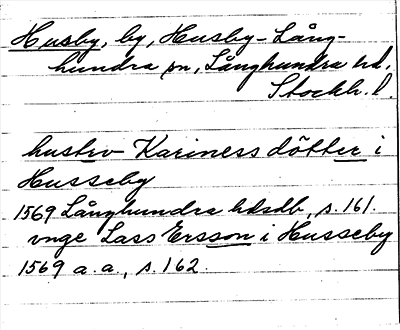 Husby, by, Husby-Lång-
hundra sn, Långhundra hd.
Stockh. l.
hustrv Kariness dötter i
Husseby
1569 Långhundra hdsdb, s. 161.
vnge Lass Ersson i Husseby
1569 a.a., s. 162.